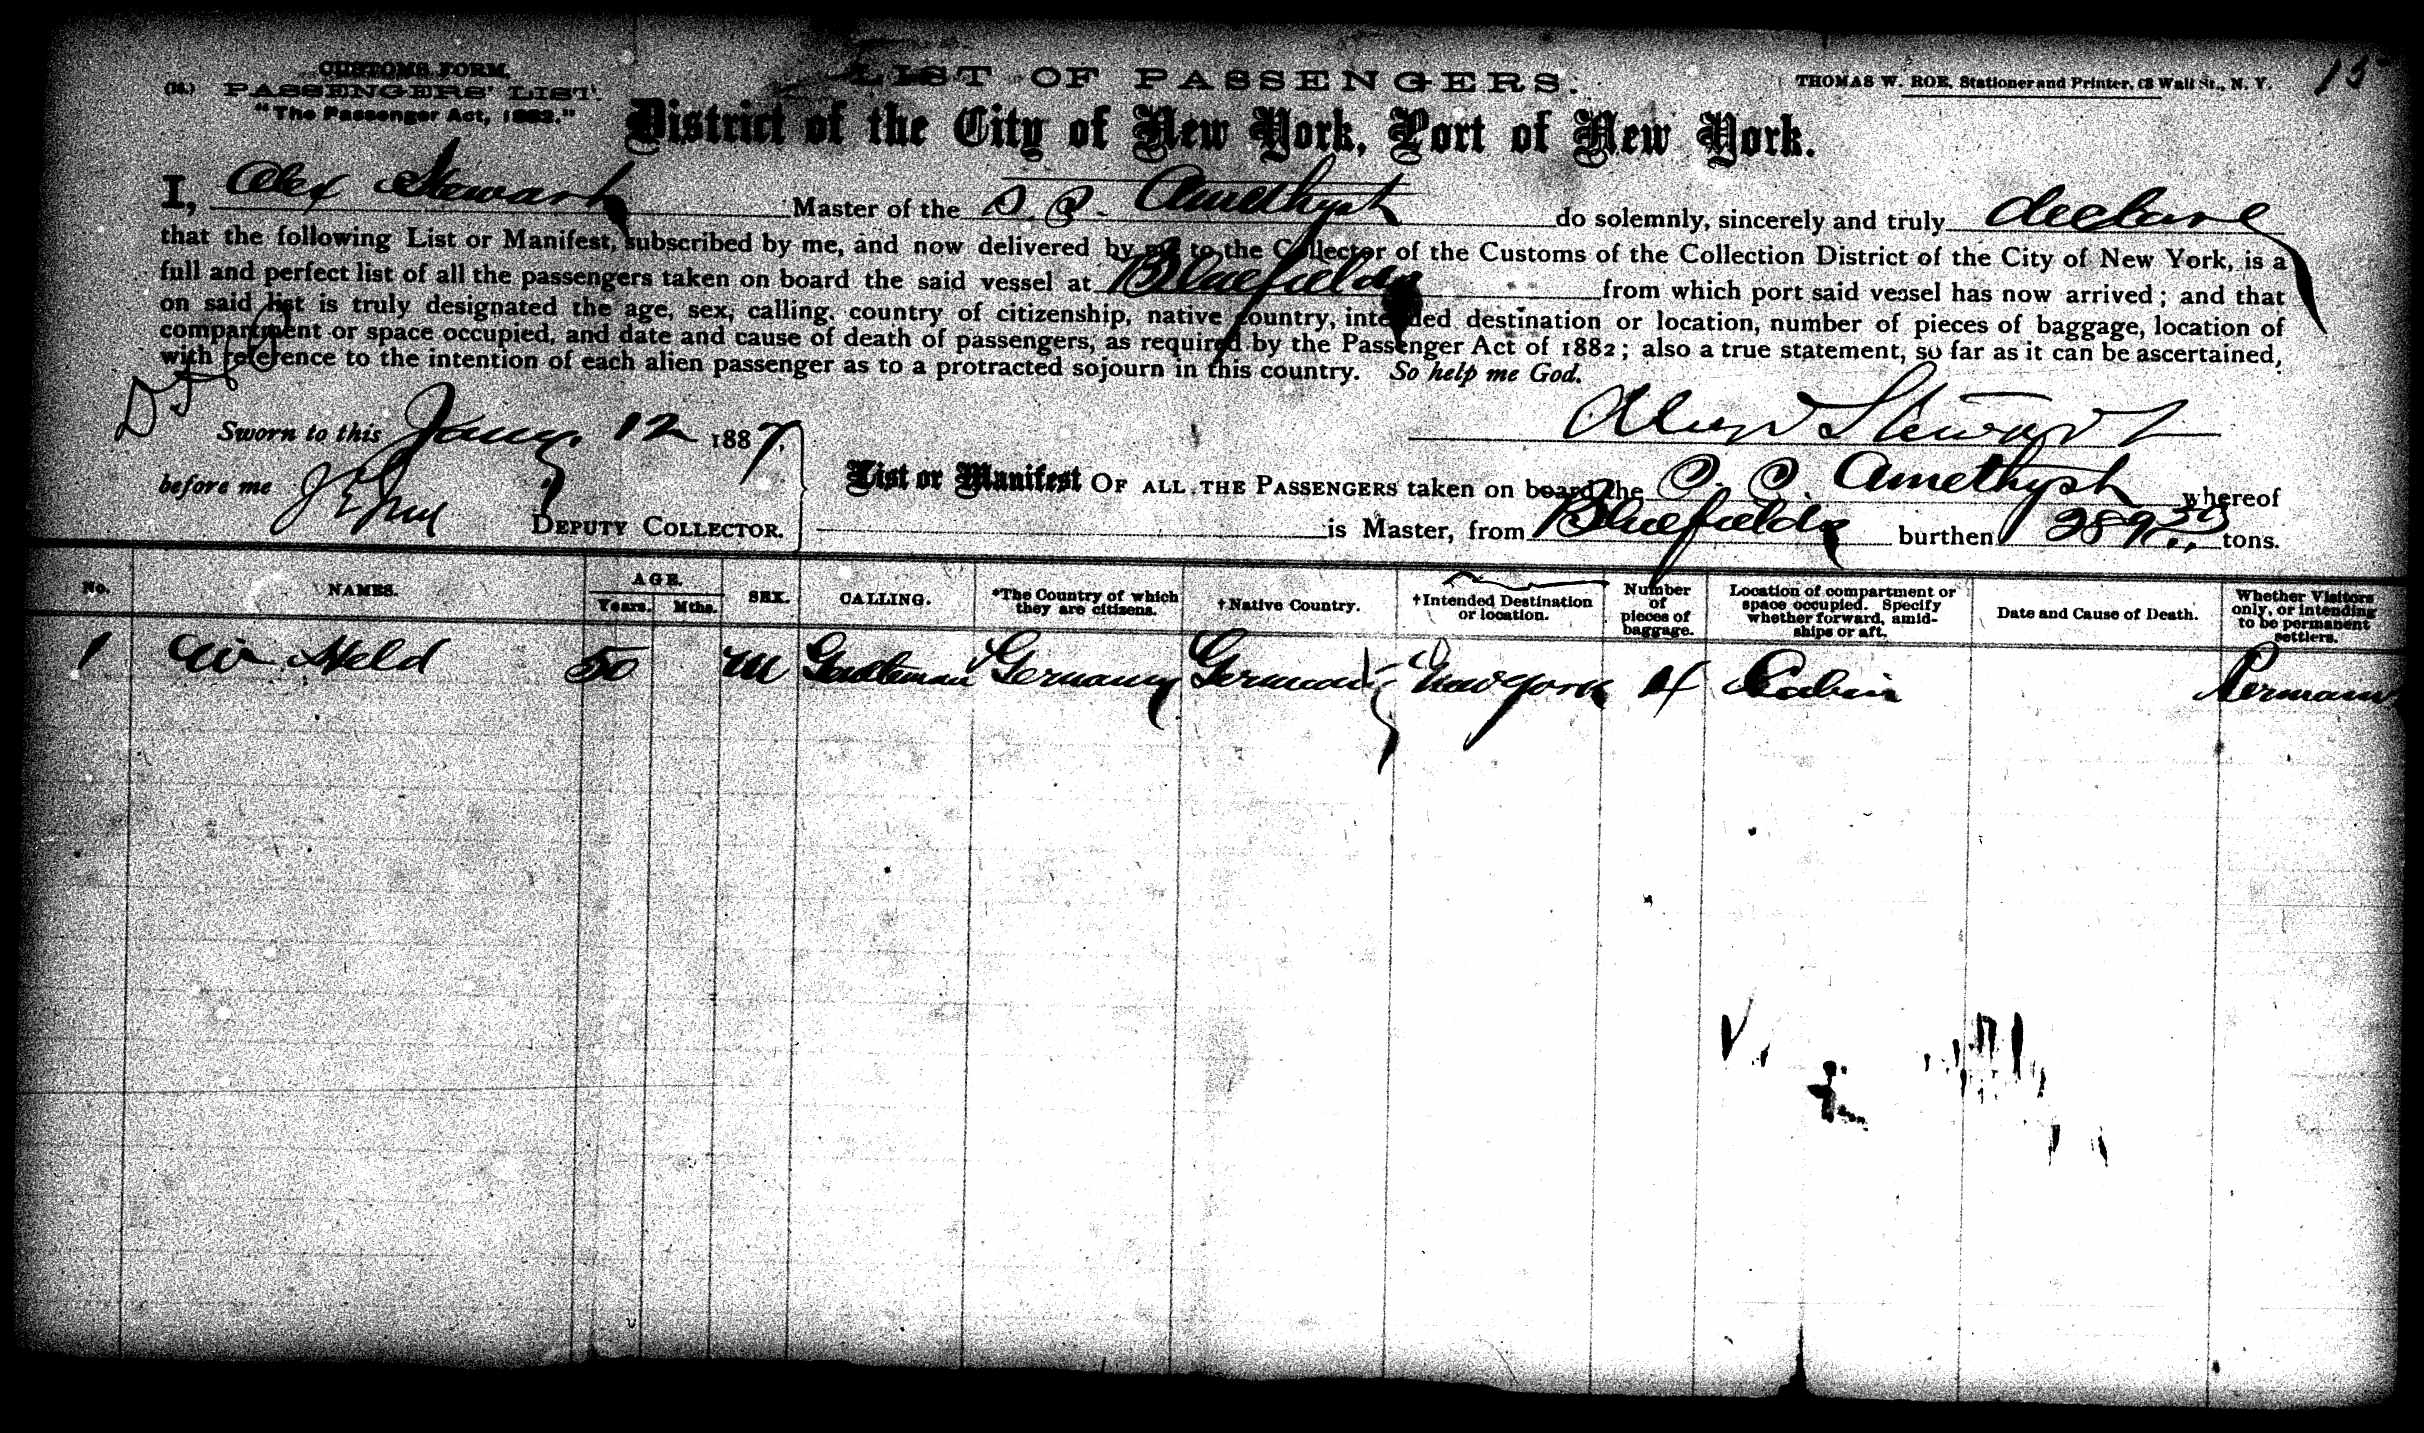 CUSTOMS FORM.
(18.) PASSENGERS' LIST.
"The Passenger Act, 1882."
LIST OF PASSENGERS.
THOMAS W. ROE, Stationer and Printer, 63 Wall St., N. Y.
13
District of the City of New York, Port of New York.
I, Alex Stewart Master of the S. S. Amethyst do solemnly, sincerely and truly declare
that the following List or Manifest, subscribed by me, and now delivered by me to the Collector of the Customs of the Collection District of the City of New York, is a
full and perfect list of all the passengers taken on board the said vessel at Bluefields from which port said vessel has now arrived; and that
on said list is truly designated the age, sex, calling, country of citizenship, native country, intended destination or location, number of pieces of baggage, location of
compartment or space occupied, and date and cause of death of passengers, as required by the Passenger Act of 1882; also a true statement, so far as it can be ascertained,
with reference to the intention of each alien passenger as to a protracted sojourn in this country. So help me God.
Sworn to this Jany. 12 1887.
Alexr Stewart
before me
DEPUTY COLLECTOR.
List or Manifest OF ALL THE PASSENGERS taken on board the S. S. Amethyst whereof
is Master, from Bluefields burthen 289 33 tons.
No. NAMES. AGE. Years. Mths. SEX. CALLING. *The Country of which they are citizens. †Native Country. †Intended Destination or location. Number of pieces of baggage. Location of compartment or space occupied. Specify whether forward, amidships or aft. Date and Cause of Death. Whether Visitors only, or intending to be permanent settlers.
1 Wm Held 50 M Gentleman Germany Germany New York 4 Cabin Perman